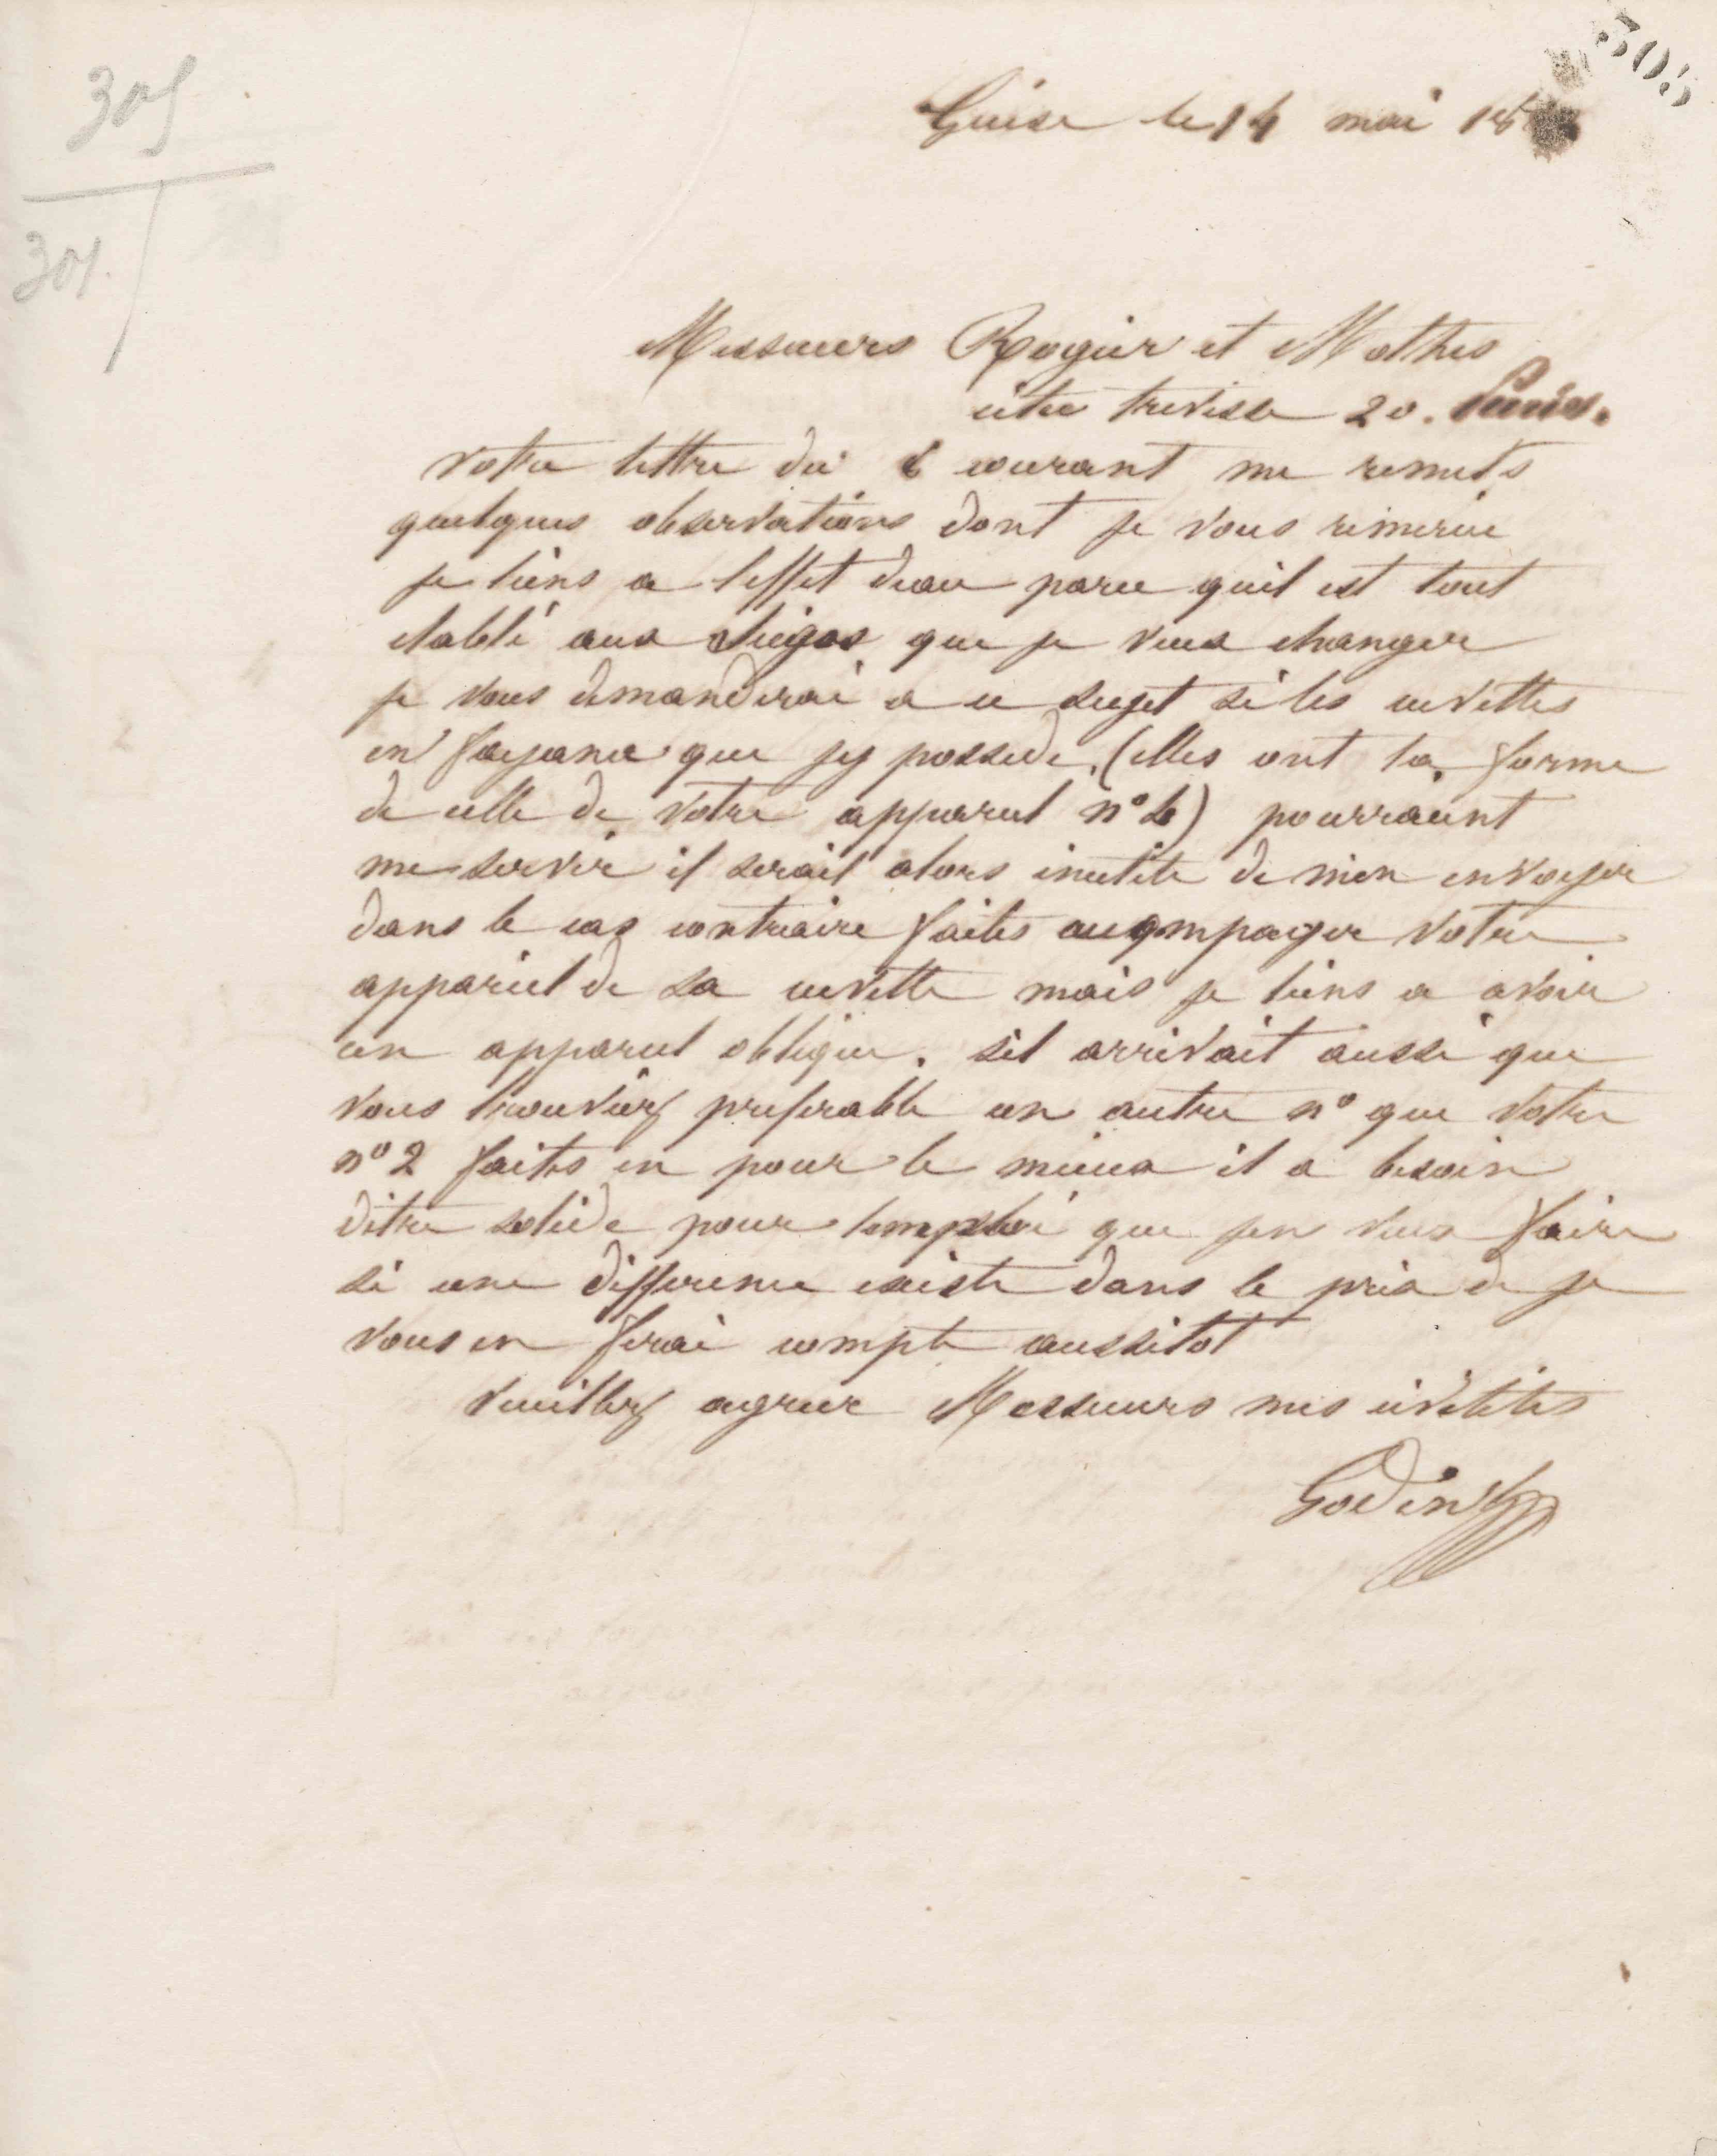 305
305
301
Guise le 14 mai 18
Messieurs Rogier et Mothes
cité trevise 20. Paris.
votre lettre du 6 courant me remets
quelques observations dont je vous remercie
je tiens a leffet deau parce quil est tout
etabli aux sieges que je veux changer
je vous demanderai a ce sujet si les cuvettes
en fayance que jy possede, (elles ont la forme
de celle de votre appareil n° 2) pourraient
me servir il serait alors inutile de men envoyer
dans le cas contraire faites accompagner votre
appareil de sa cuvette mais je tiens a avoir
un appareil oblique. sil arrivait aussi que
vous trouviez preferable un autre n° que votre
n° 2 faites en pour le mieux il a besoin
detre solide pour lemploi que jen veux faire
si une difference existe dans le prix de je
vous en ferai compte aussitot
veuillez agreer Messieurs mes civilités
Godin